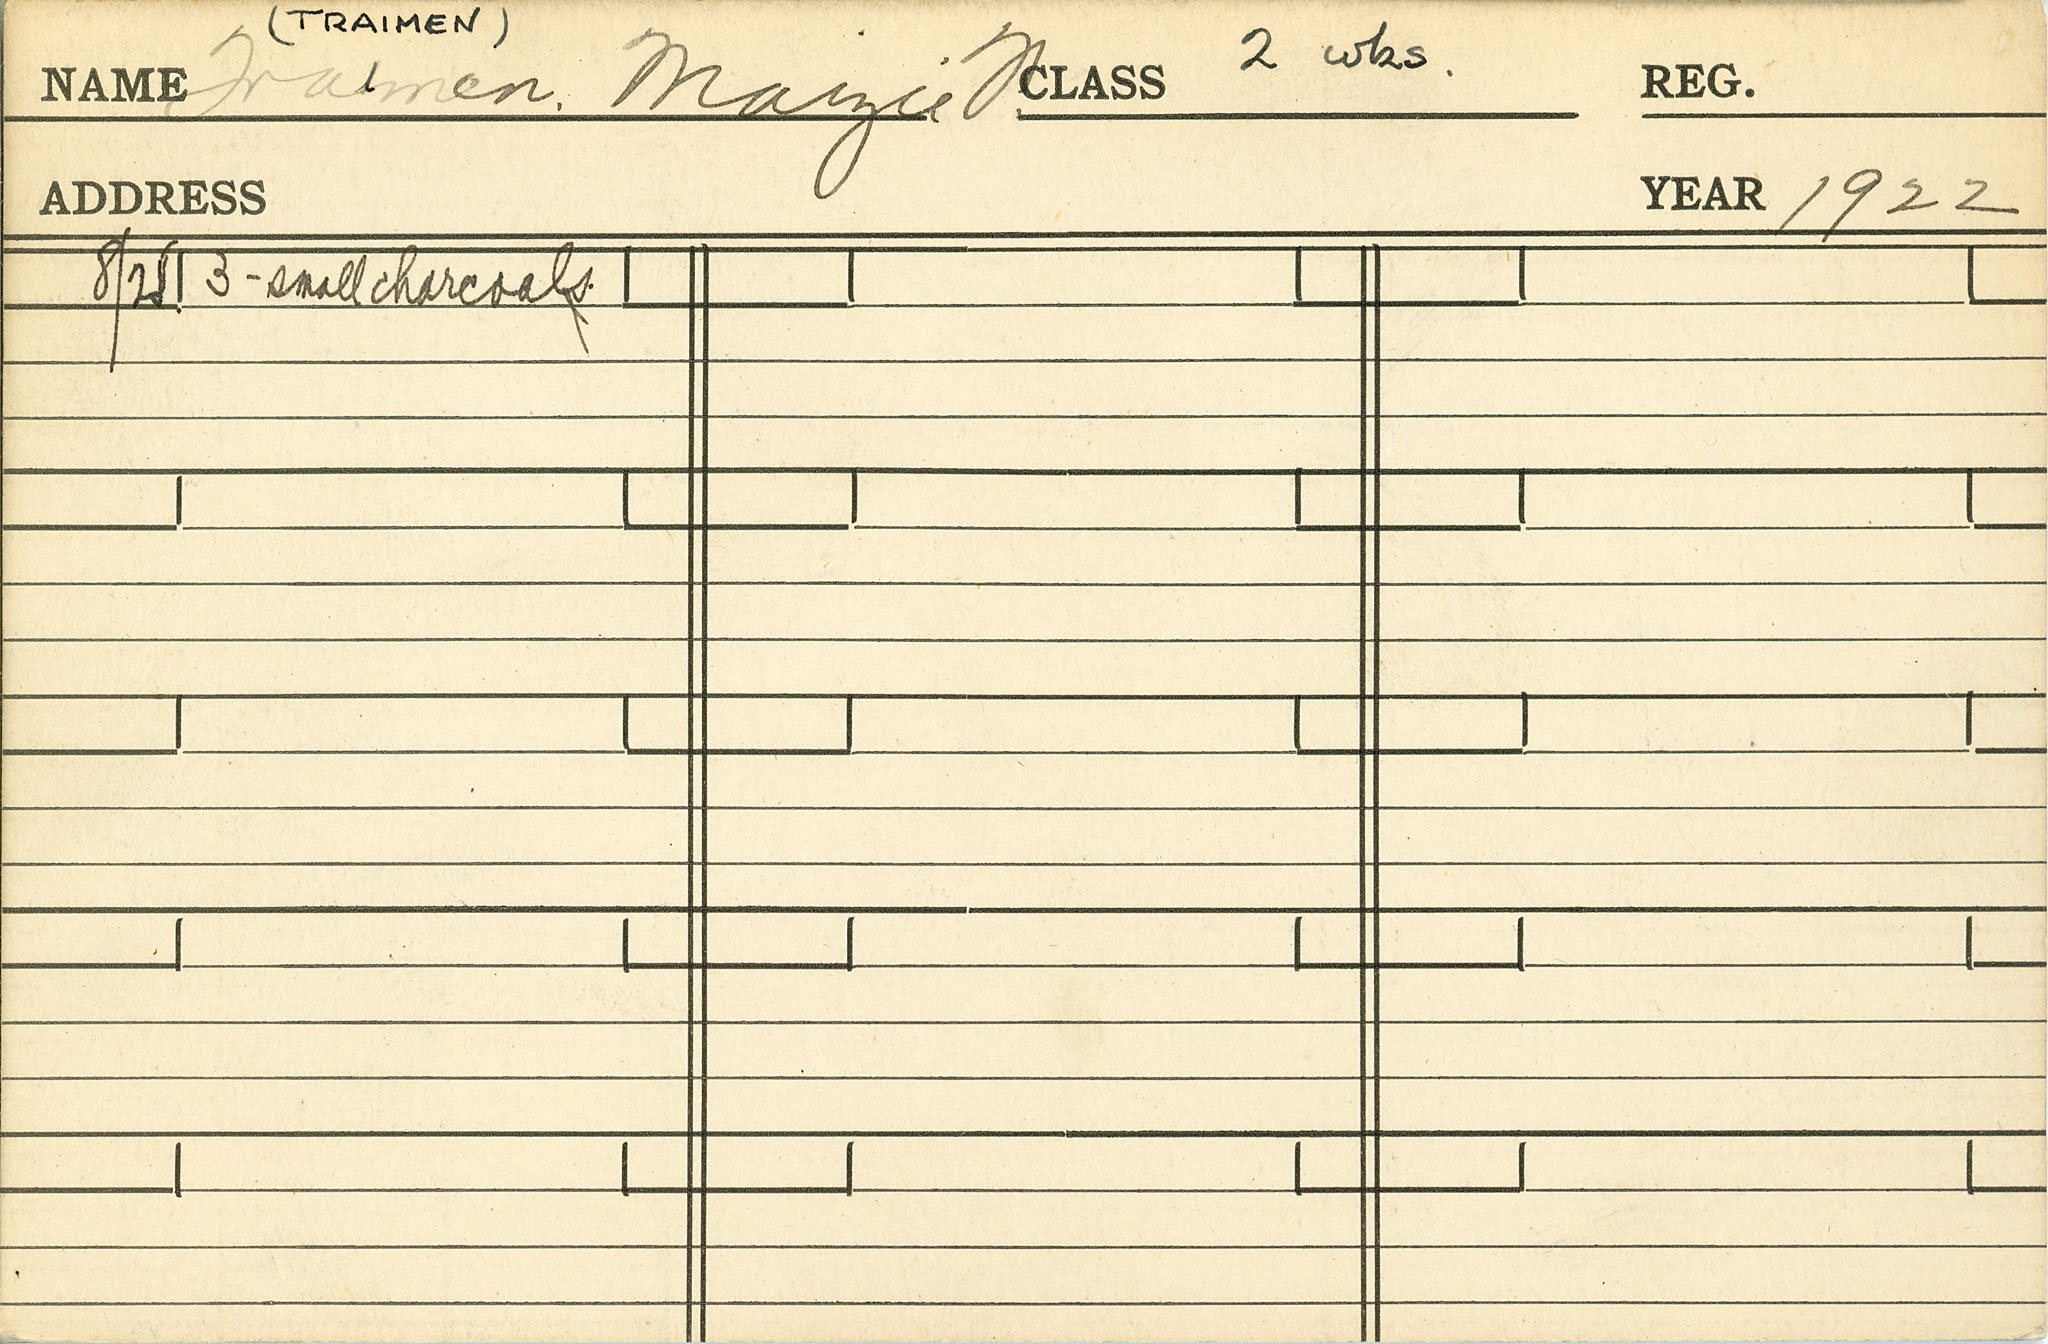 (TRAIMEN)
NAME Traimen. Maizie M. CLASS 2 wks. REG.
ADDRESS YEAR 1922
8/28 3 - small charcoals.